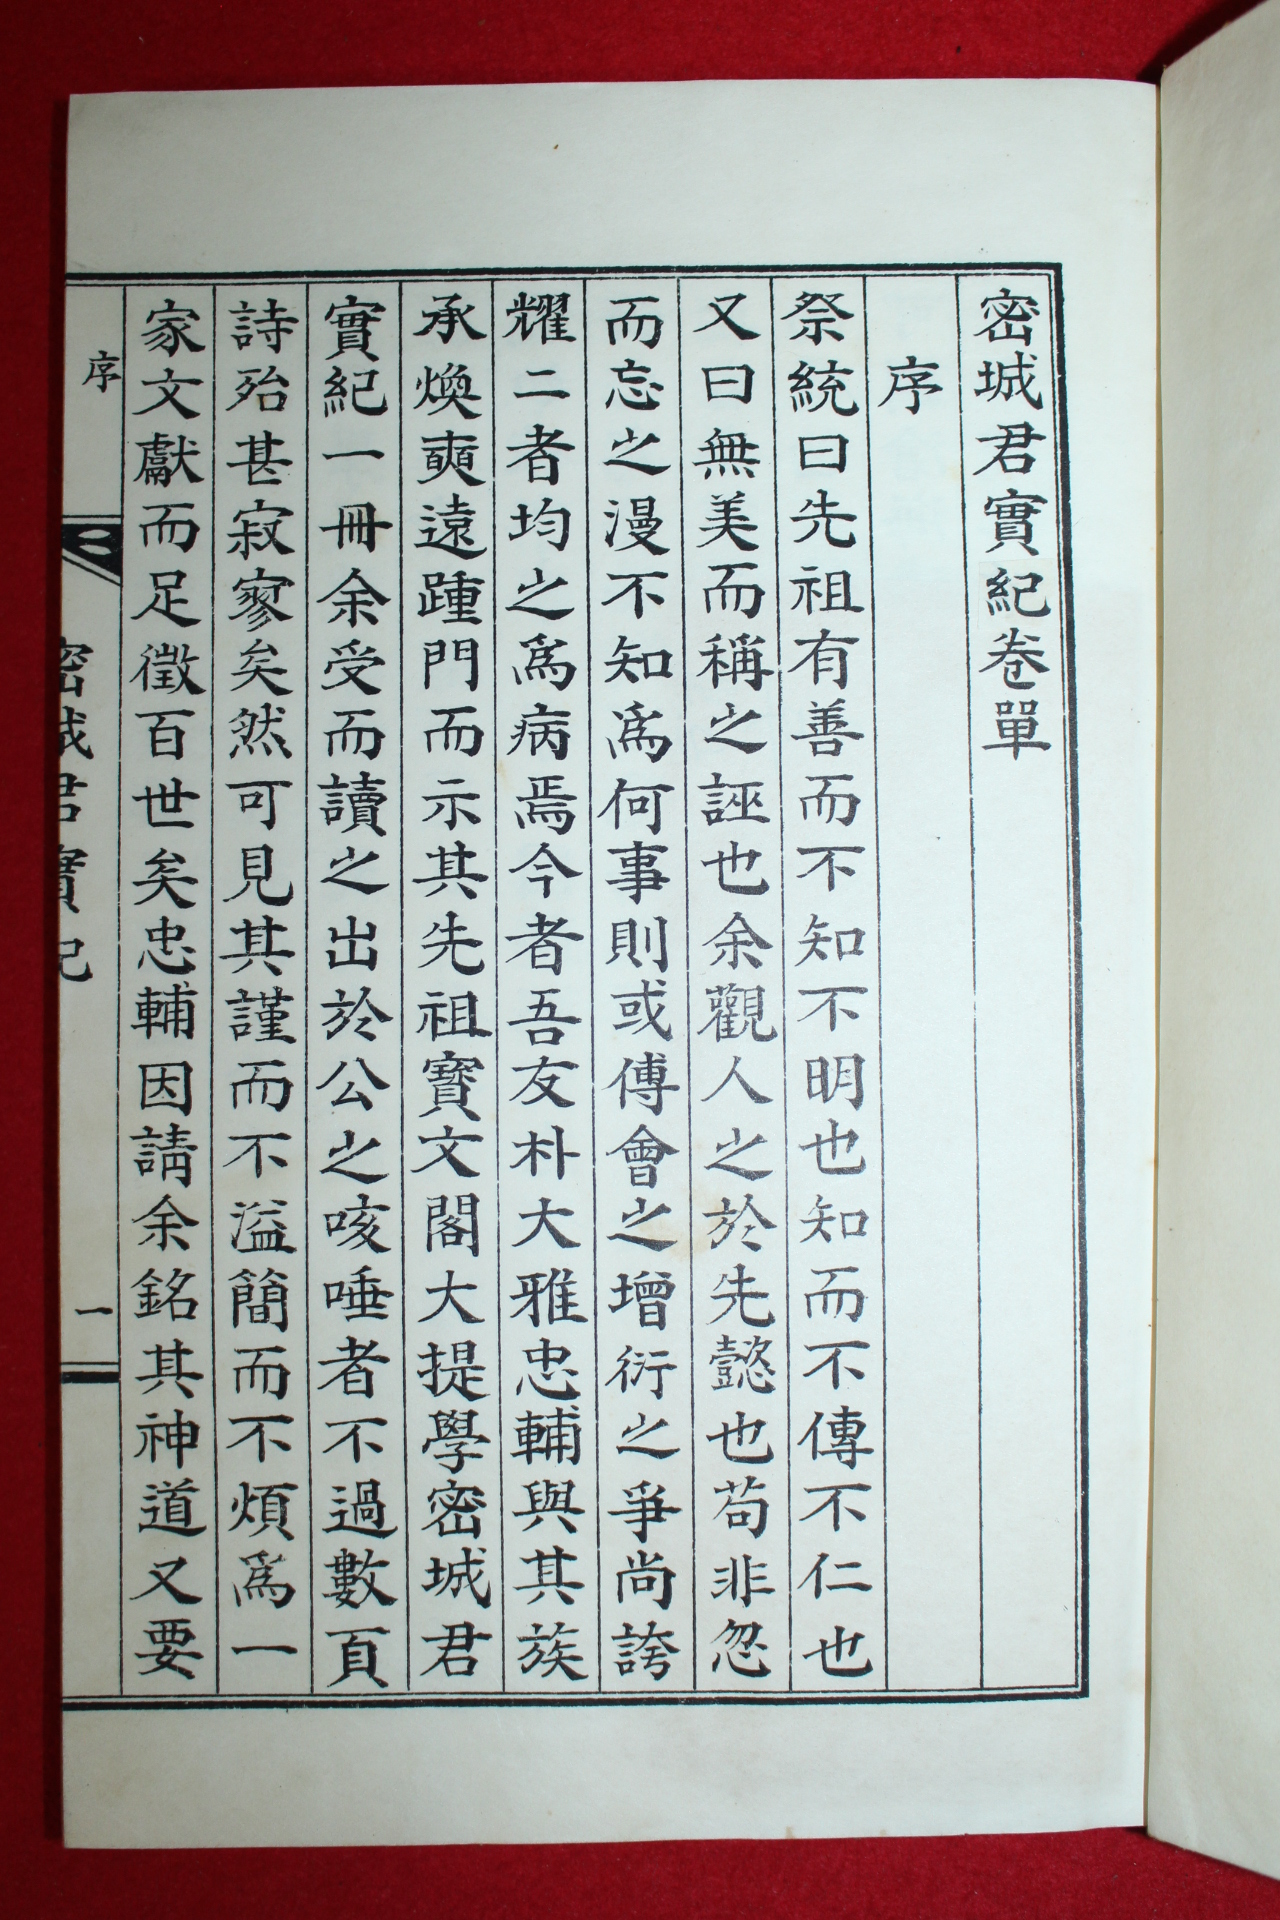 密城君實紀卷單
序
祭統曰先祖有善而不知不明也知而不傳不仁也
又曰無美而稱之誣也余觀人之於先懿也苟非忽
而忘之漫不知爲何事則或傅會之增衍之爭尚誇
耀二者均之爲病焉今者吾友朴大雅忠輔與其族
承煥奭遠踵門而示其先祖寶文閣大提學密城君
實紀一冊余受而讀之出於公之咳唾者不過數頁
詩殆甚寂寥矣然可見其謹而不溢簡而不煩爲一
家文獻而足徵百世矣忠輔因請余銘其神道又要
序
密城君實紀
一